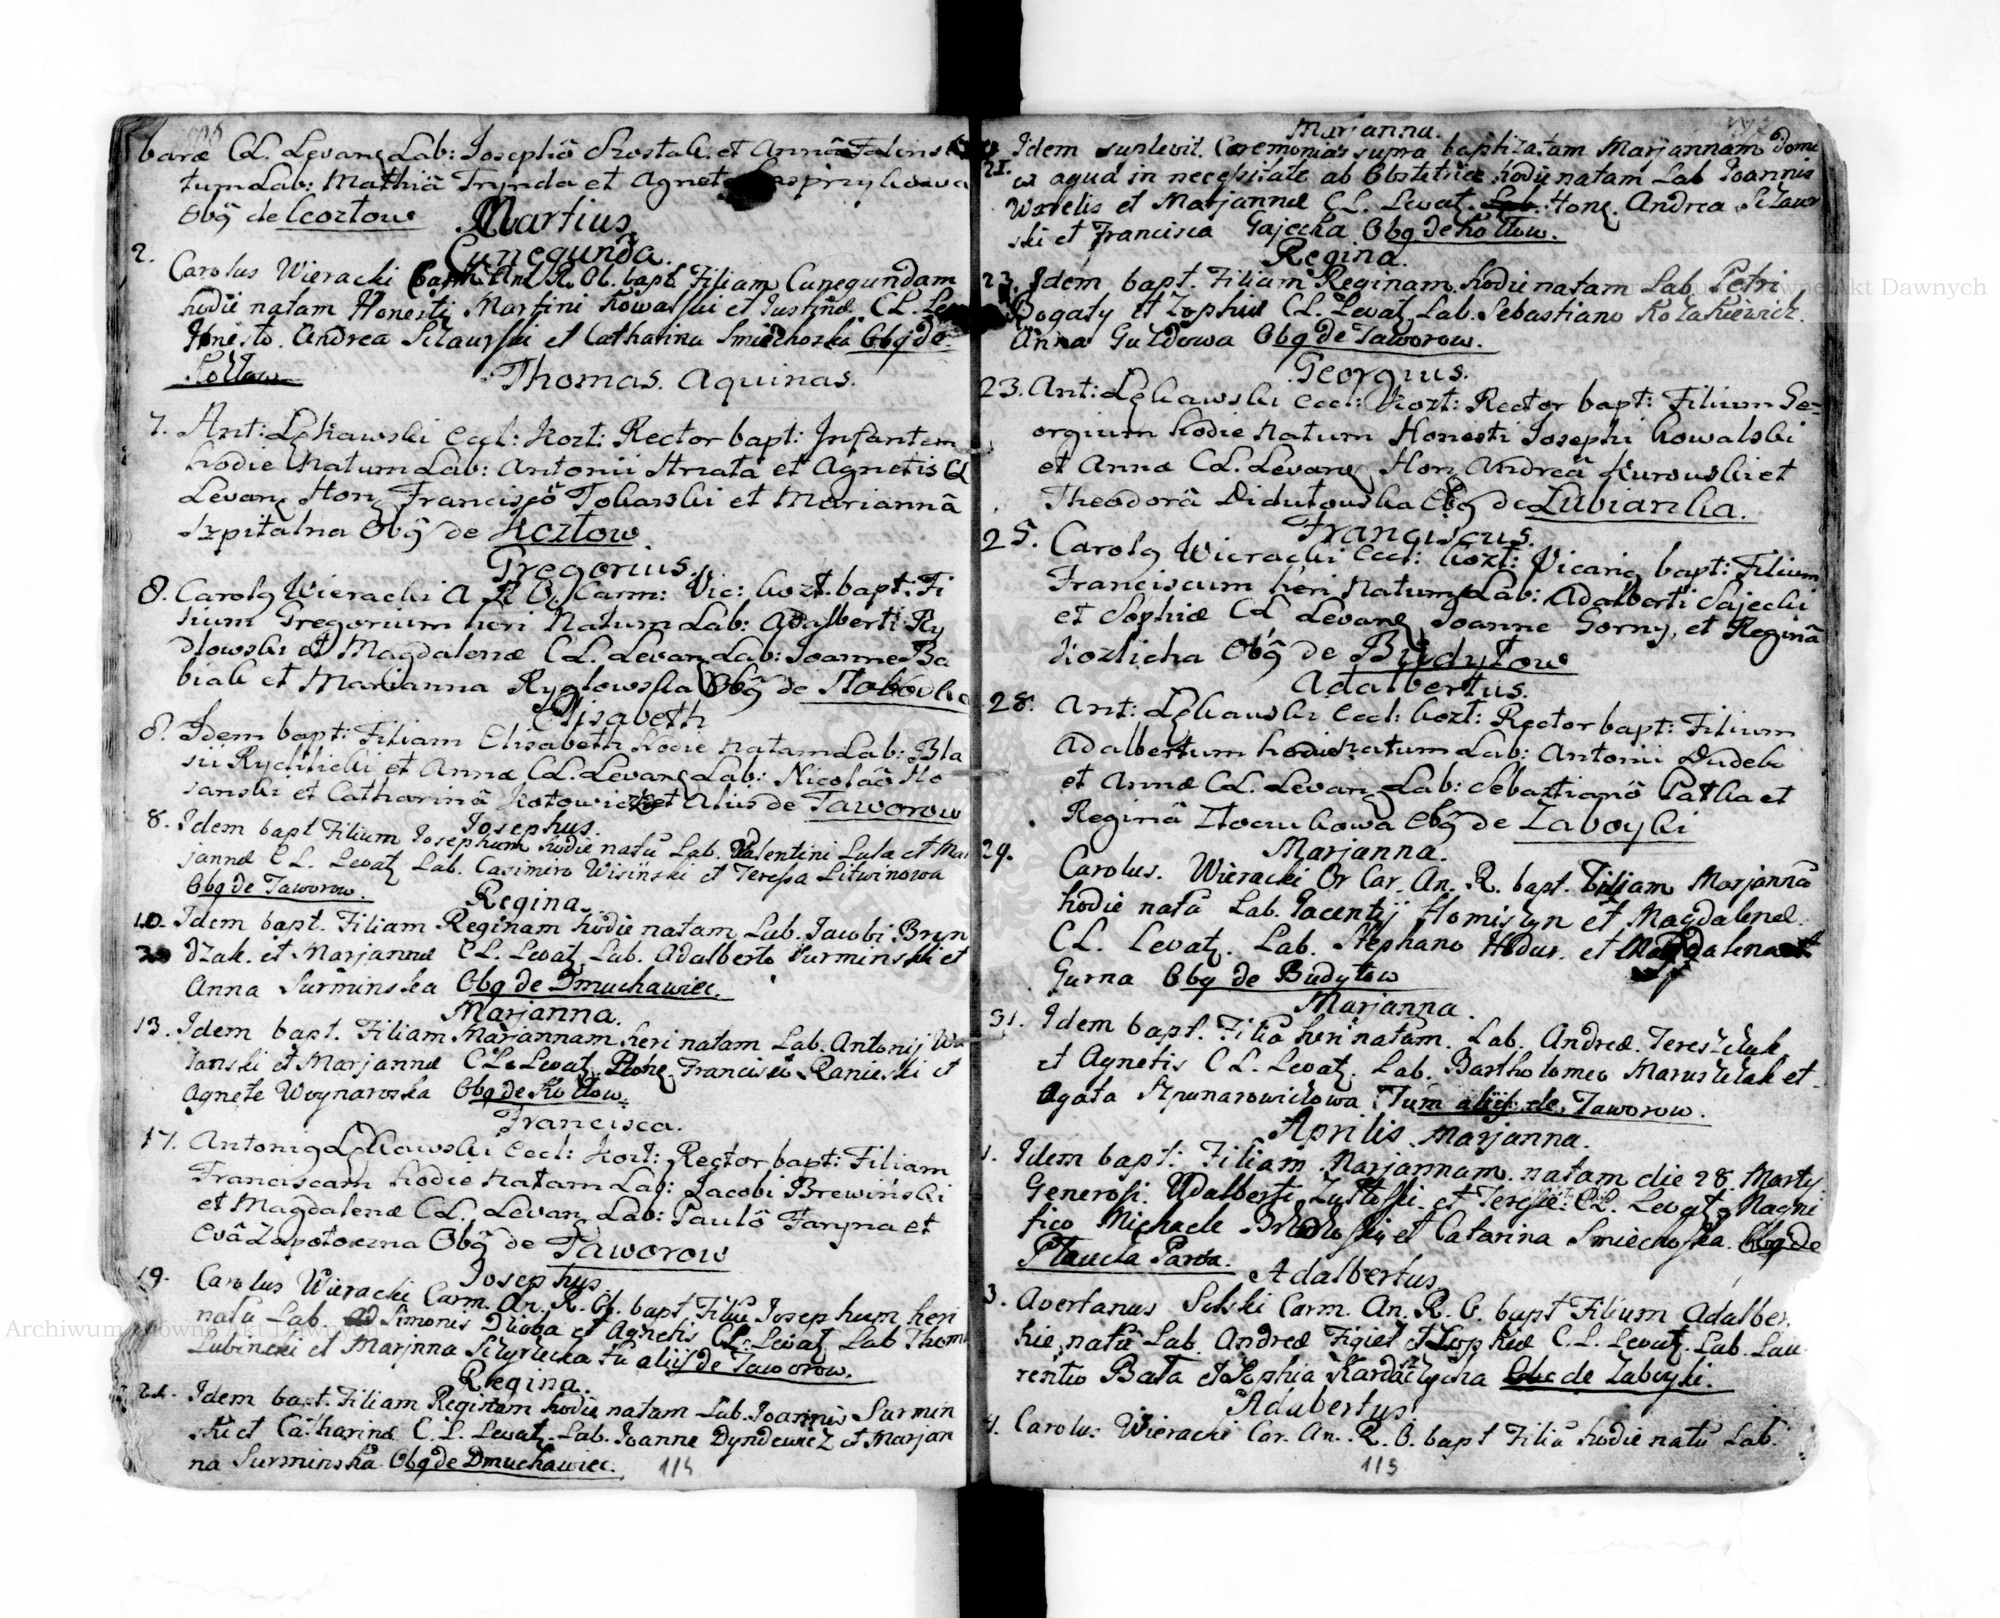 baræ CL. Levanę Lab: Josephō Krostak. et Annā
tum Lab: Mathiā Trynda et Agnete
Obꝗ de Kozłow
Martius
Cunegunda.
2. Carolus Wieracki Carm. An. R. Ob. bapt. Filiam Cunegundam
hodie natam Honesti Martini Kowalski et Justinæ. CL. Le
Honesto. Andrea Szlauski et Catharina Smiechoska Obꝗ de
Kozłow
Thomas. Aquinas.
7. Ant: Lękawski Eccl: Kozt: Rector bapt: Infantem
hodie Natum Lab: Antonii Strzata et Agnetis CL
Levanę Hon Franciscō Tokarski et Mariannā
Szpitalna Obꝗ de Kozłow
Gregorius.
8. Carolꝗ Wieracki A. R. O. Carm: Vic: Kozt. bapt: Fi
lium Gregorium heri Natum Lab: Adalberti Ry
dłowski et Magdalenæ CL. Levan Lab: Joanne Ba
biak et Marianna Rydłowska Obꝗ de
Elisabeth
8. Idem bapt: Filiam Elisabeth hodie natam Lab: Bla
sii Rychlicki et Annæ CL. Levanę Lab: Nicolāō Ko
sanski et Catharinā et Aliis de Taworow
Josephus.
8. Idem bapt Filium Josephum hodie natū Lab. Valentini Lula et Mar
jannæ CL. Levatꝫ Lab. Casimiro Wisinski et Teressa Litwinowa
Obꝗ de Taworow.
Regina.
10. Idem bapt. Filiam Reginam hodie natam Lab. Jacobi Bryn
dzak. et Marjannæ CL. Levatꝫ Lab. Adalberto Surminski et
Anna Surminska Obꝗ de Dmuchawiec.
Marjanna.
13. Idem bapt. Filiam Marjannam heri natam Lab. Antonij Wa
lanski et Marjannæ CL. Levatꝫ. Hone Francisco Raneski et
Agnete Woynaroska Obꝗ de Kozłow.
Francisca.
17. Antoniꝗ Lękawski Eccl: Kozt: Rector bapt: Filiam
Franciscam hodie natam Lab: Jacobi Brewiński
et Magdalenæ CL. Levanę Lab: Paulō Faryna et
Evā Zapotoczna Obꝗ de Taworow
Josephus
19. Carolus Wieracki Carm. An. R. O. bapt Filiū Josephum heri
natū Lab. Simonis Dzioba et Agnetis CL. Levatꝫ Lab Thom
Lubinski et Marjnna Szlyrlecka tū aliis de Taworow.
Regina.
21. Idem bapt. Filiam Reginam hodie natam Lab. Joannis Surmin
ski et Catharinæ C. L. Levatꝫ. Lab. Joanne Dyndewicz et Marjan
na Surminska Obꝗ de Dmuchawiec.
114
Marjanna.
21. Idem suplevit. Ceremonias supra baptizatam Marjannam domi
ex aqua in necessitate ab Obstetrice hodie natam Lab Joannis
Wavelis et Marjannæ CL. Levat. Hone. Andrea Szlauw
ski et Francisca Gajecka Obꝗ de Kozłow.
Regina.
23. Idem bapt. Filiam Reginam. hodie natam Lab. Petri
Bogaty et Zophiæ CL. Levat Lab. Sebastiano Kozakiewicz.
Anna Guzdowa Obꝗ de Taworow.
Georgius.
23. Ant: Lękawski Eccl: Kozt: Rector bapt: Filium Ge-
orgium hodie natum Honesti Josephi Kowalski
et Annæ CL. Levanę Hon Andreā Kurowski et
Theodorā Didułowska Obꝗ de Lubianka.
Franciscus.
25. Carolꝗ Wieracki Eccl: Kozt: Vicariꝗ bapt: Filium
Franciscum heri natum Lab: Adalberti Gajecki
et Sophiæ CL Levanę Joanne Gorny, et Reginā
Kozlicha Obꝗ de Budyłow
Adalbertus.
28. Ant: Lękawski Eccl: Kozt: Rector bapt: Filium
Adalbertum hodie natum Lab: Antonii Dudek
et Annæ CL. Levanę Lab: Sebastianō Patka et
Reginā Obꝗ de Zaboyki
Marjanna.
29. Carolus. Wieracki Or Car. An. R. bapt. Filjam Marjannā
hodie natā Lab. Jacentij Homiszyn et Magdalenæ.
CL. Levatꝫ. Lab. Stephano Hodur. et Magdalena
Gurna Obꝗ de Budyłow
Marjanna.
31. Idem bapt. Filiā heri natam. Lab. Andreæ. Tereszczuk
et Agnetis CL. Levatꝫ. Lab. Bartholomeo Maruszczak et
Agata Szpunarowiczowa Tum alijs de Taworow.
Aprilis. Marjanna.
1. Idem bapt: Filiam Marjannam. natam die 28. Martij
Generosi. Adalberti et Teresie: CL. Levatꝫ Magni
fico Michaele et Catarina Smiechoska. Obꝗ de
Płaucza Parva.
Adalbertus
3. Avertanus Solski Carm. An. R. O. bapt Filium Adalber.
hie natū Lab. Andreæ Figiel et Zophiæ CL. Levatꝫ. Lab. Lau
rentio Bała et Zophia Kardaszlycha Obꝗ de Zaboyki.
Adabertus
4. Carolus Wieracki Car. An. R. O. bapt Filiū hodie natū Lab.
115
Archiwum Główne Akt Dawnych
Archiwum Główne Akt Dawnych